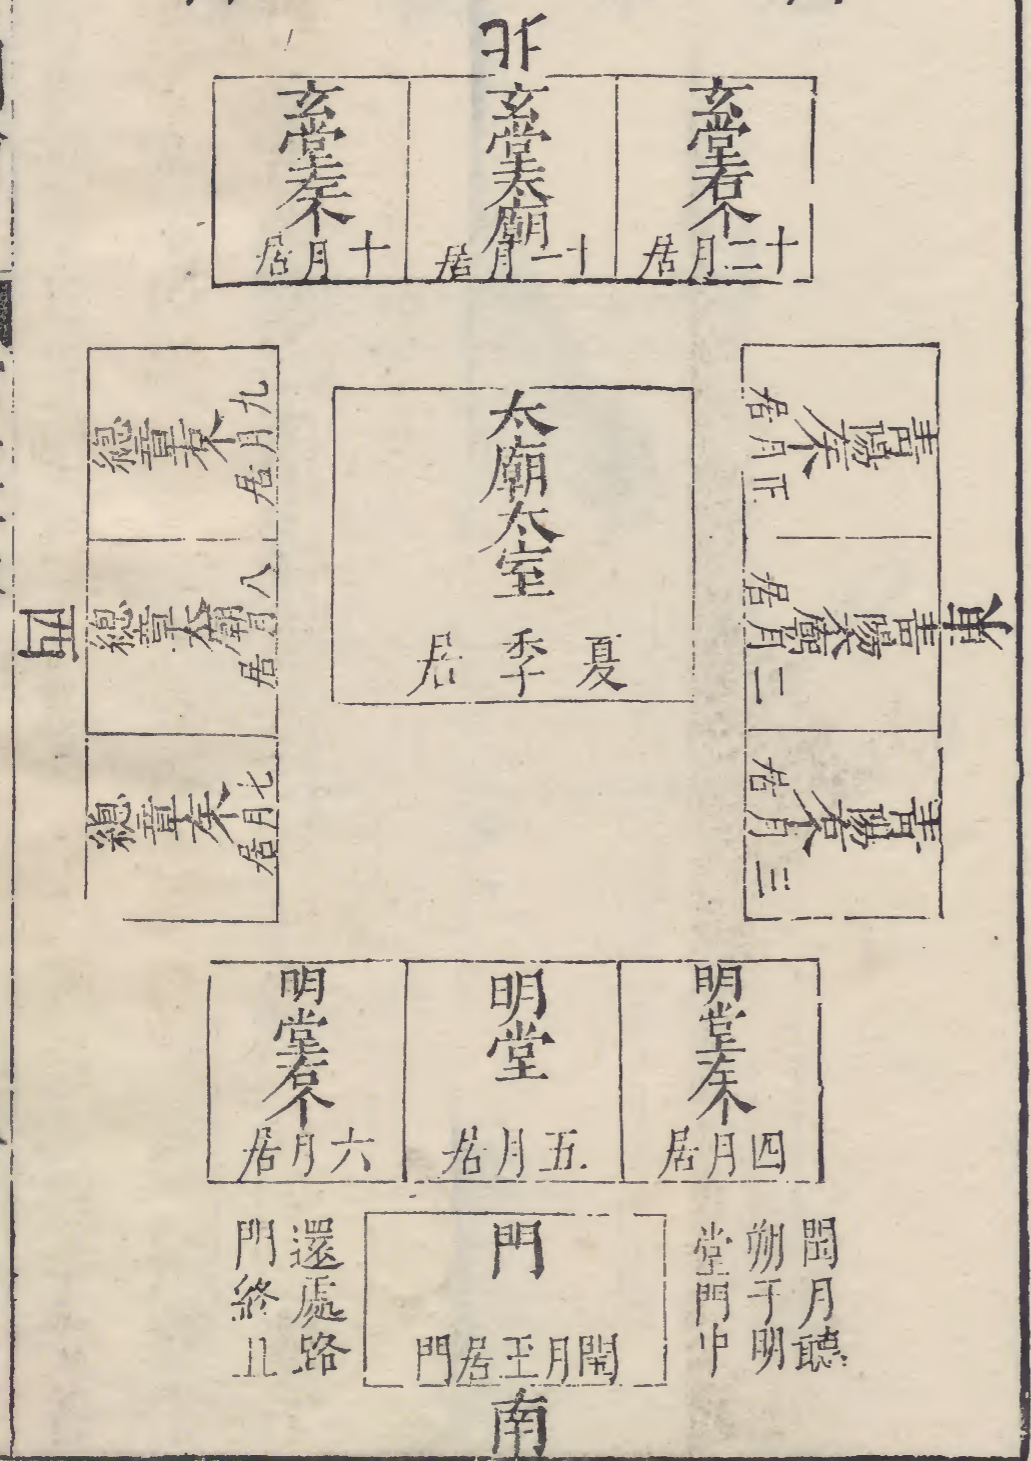 北
玄堂右个
十二月居
玄堂太廟
十一月居
玄堂左个
十月居
東
青陽左个
正月居
青陽太廟
二月居
青陽右个
三月居
太廟太室
夏季居
西
總章右个
九月居
總章太廟
八月居
總章左个
七月居
明堂左个
四月居
明堂
五月居
明堂右个
六月居
閏月聽
朔于明
堂門中
門
閏月王居門
還處路
門終月
南